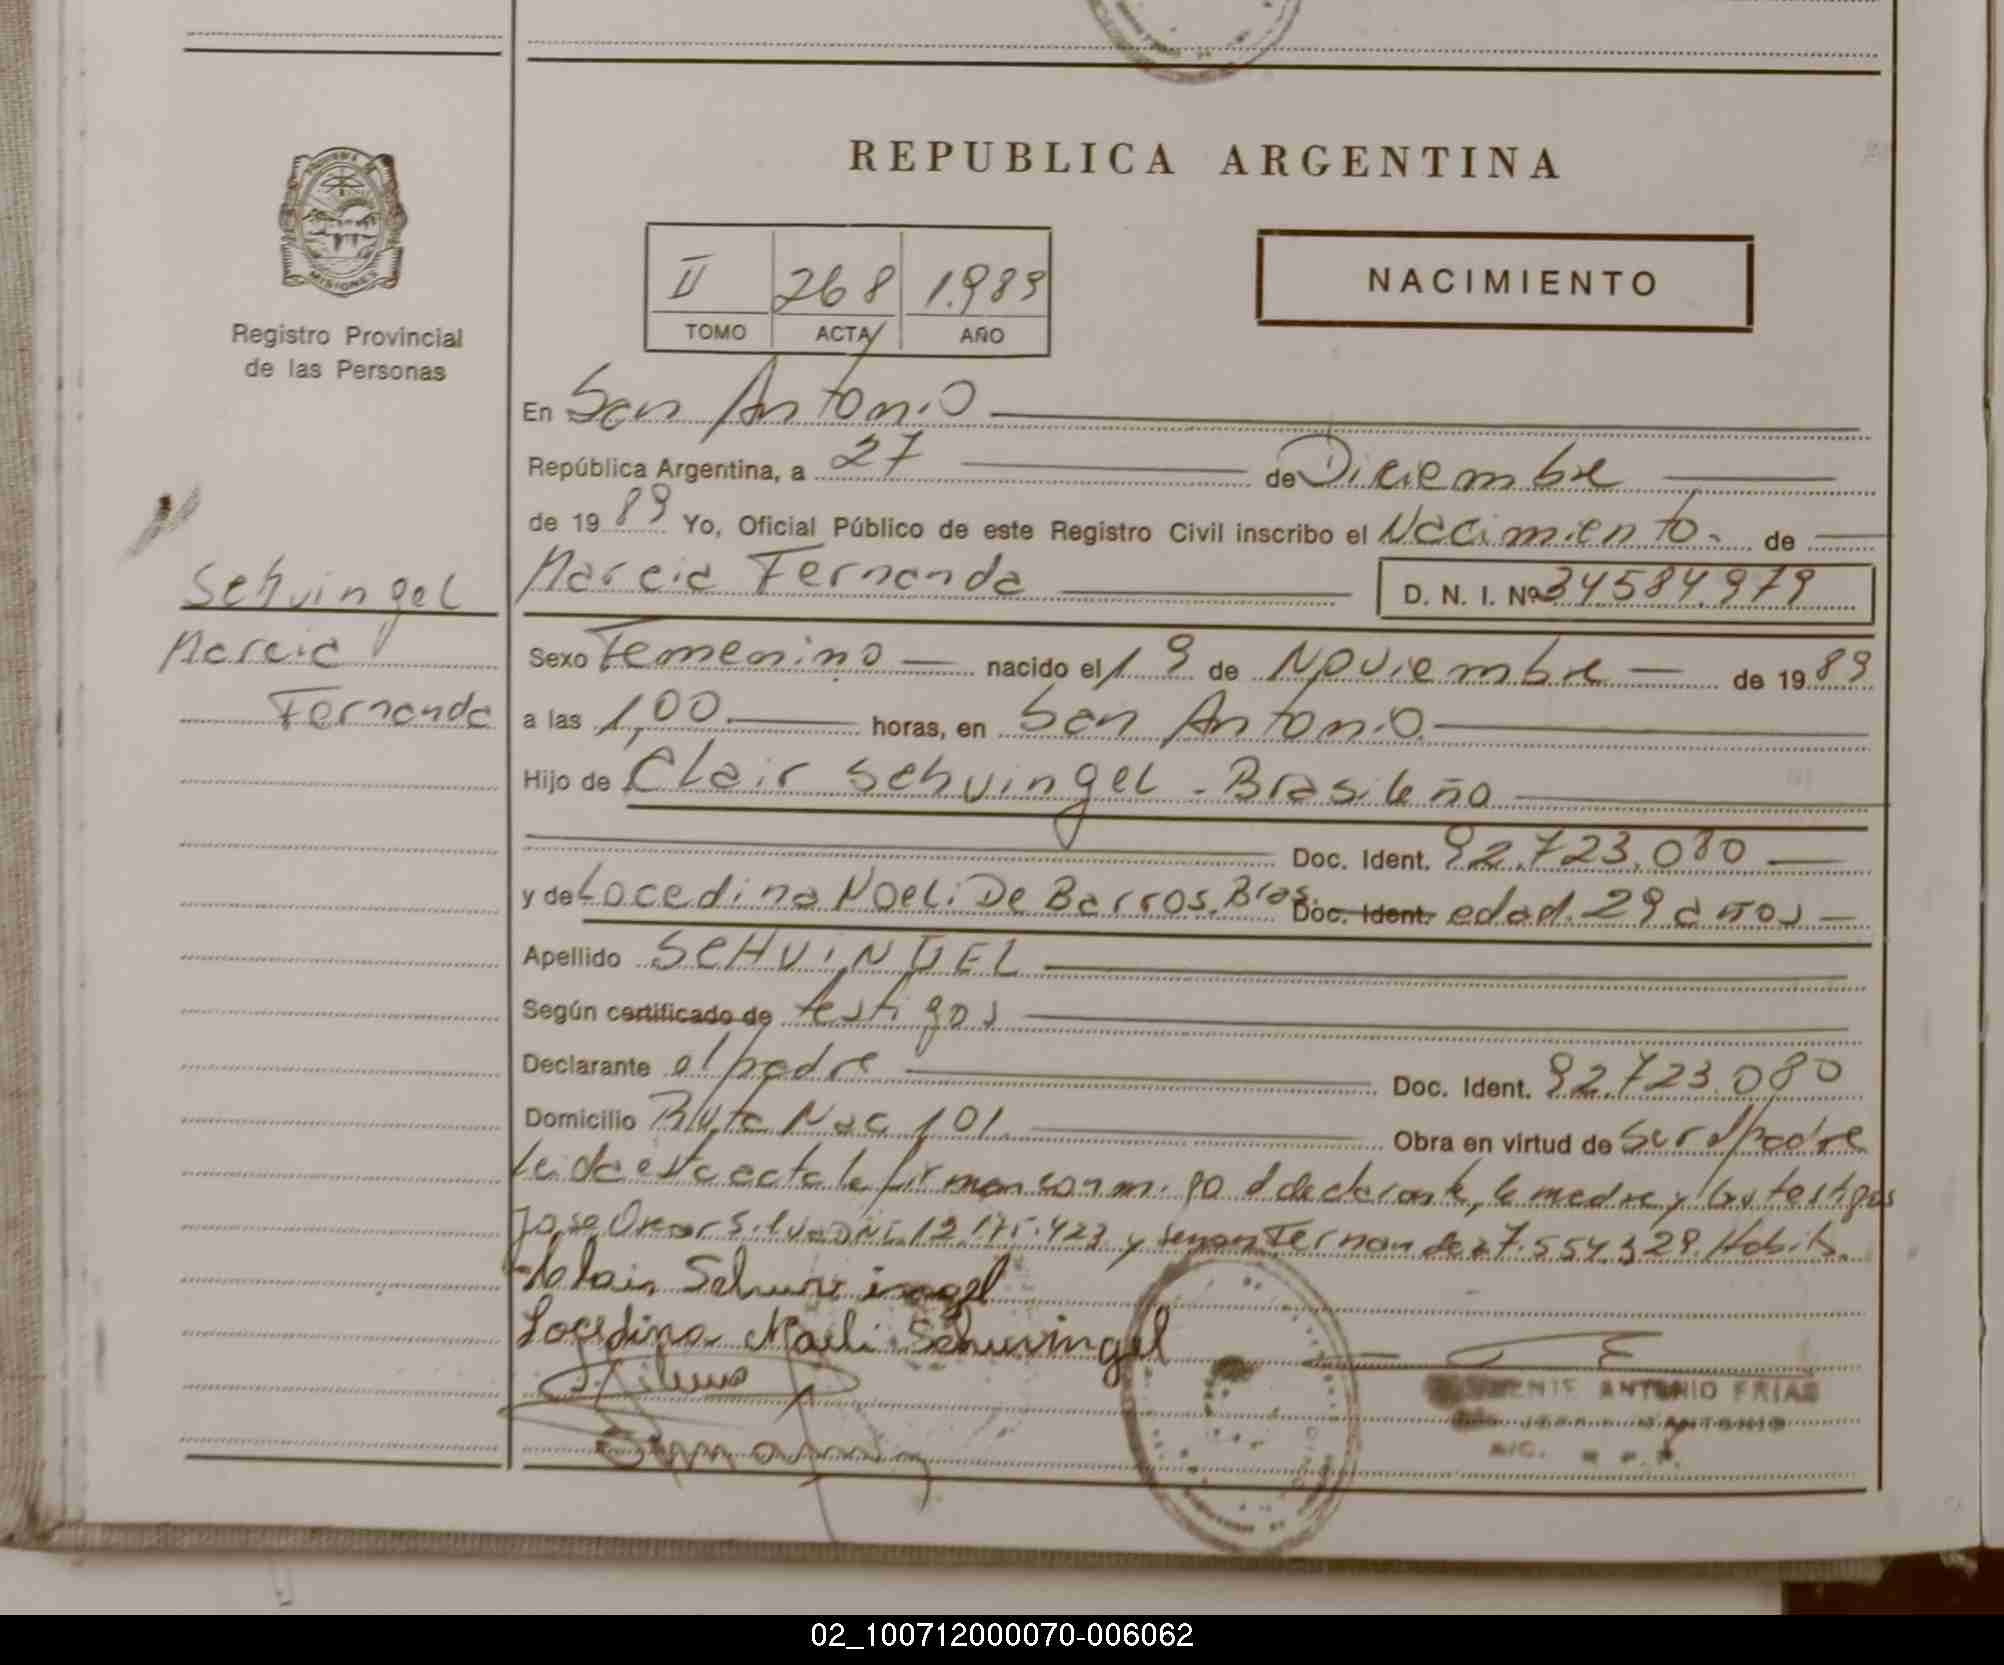 REPUBLICA ARGENTINA
MISIONES
Registro Provincial
de las Personas
II 268 1.989
TOMO ACTA AÑO
NACIMIENTO
En San Antonio
República Argentina, a 27 de Diciembre
de 1989 Yo, Oficial Público de este Registro Civil inscribo el Nacimiento. de
Schvingel
Marcia
Fernanda
Marcia Fernanda D. N. I. Nº 34584979
Sexo Femenino nacido el 19 de Noviembre de 1989
a las 1,00 horas, en San Antonio
Hijo de Clair Schvingel - Brasileño
Doc. Ident. 92.723.080
y de Locedina Noeli De Barros. Bras. Doc. Ident. edad. 29 años
Apellido SCHVINGEL
Según certificado de testigos
Declarante el padre Doc. Ident. 92.723.080
Domicilio Ruta Nac. 101. Obra en virtud de ser el padre
Leida esta acta la firman conmigo el declarante, la madre y los testigos
Jose Oscar Silva DNI. 12.175.423 y Fernandez 7.554.329. Habil
Schuvingel
Locedina Maeli Schuvingel
ANTONIO FRIAS
ANTONIO
A/C.
02_100712000070-006062